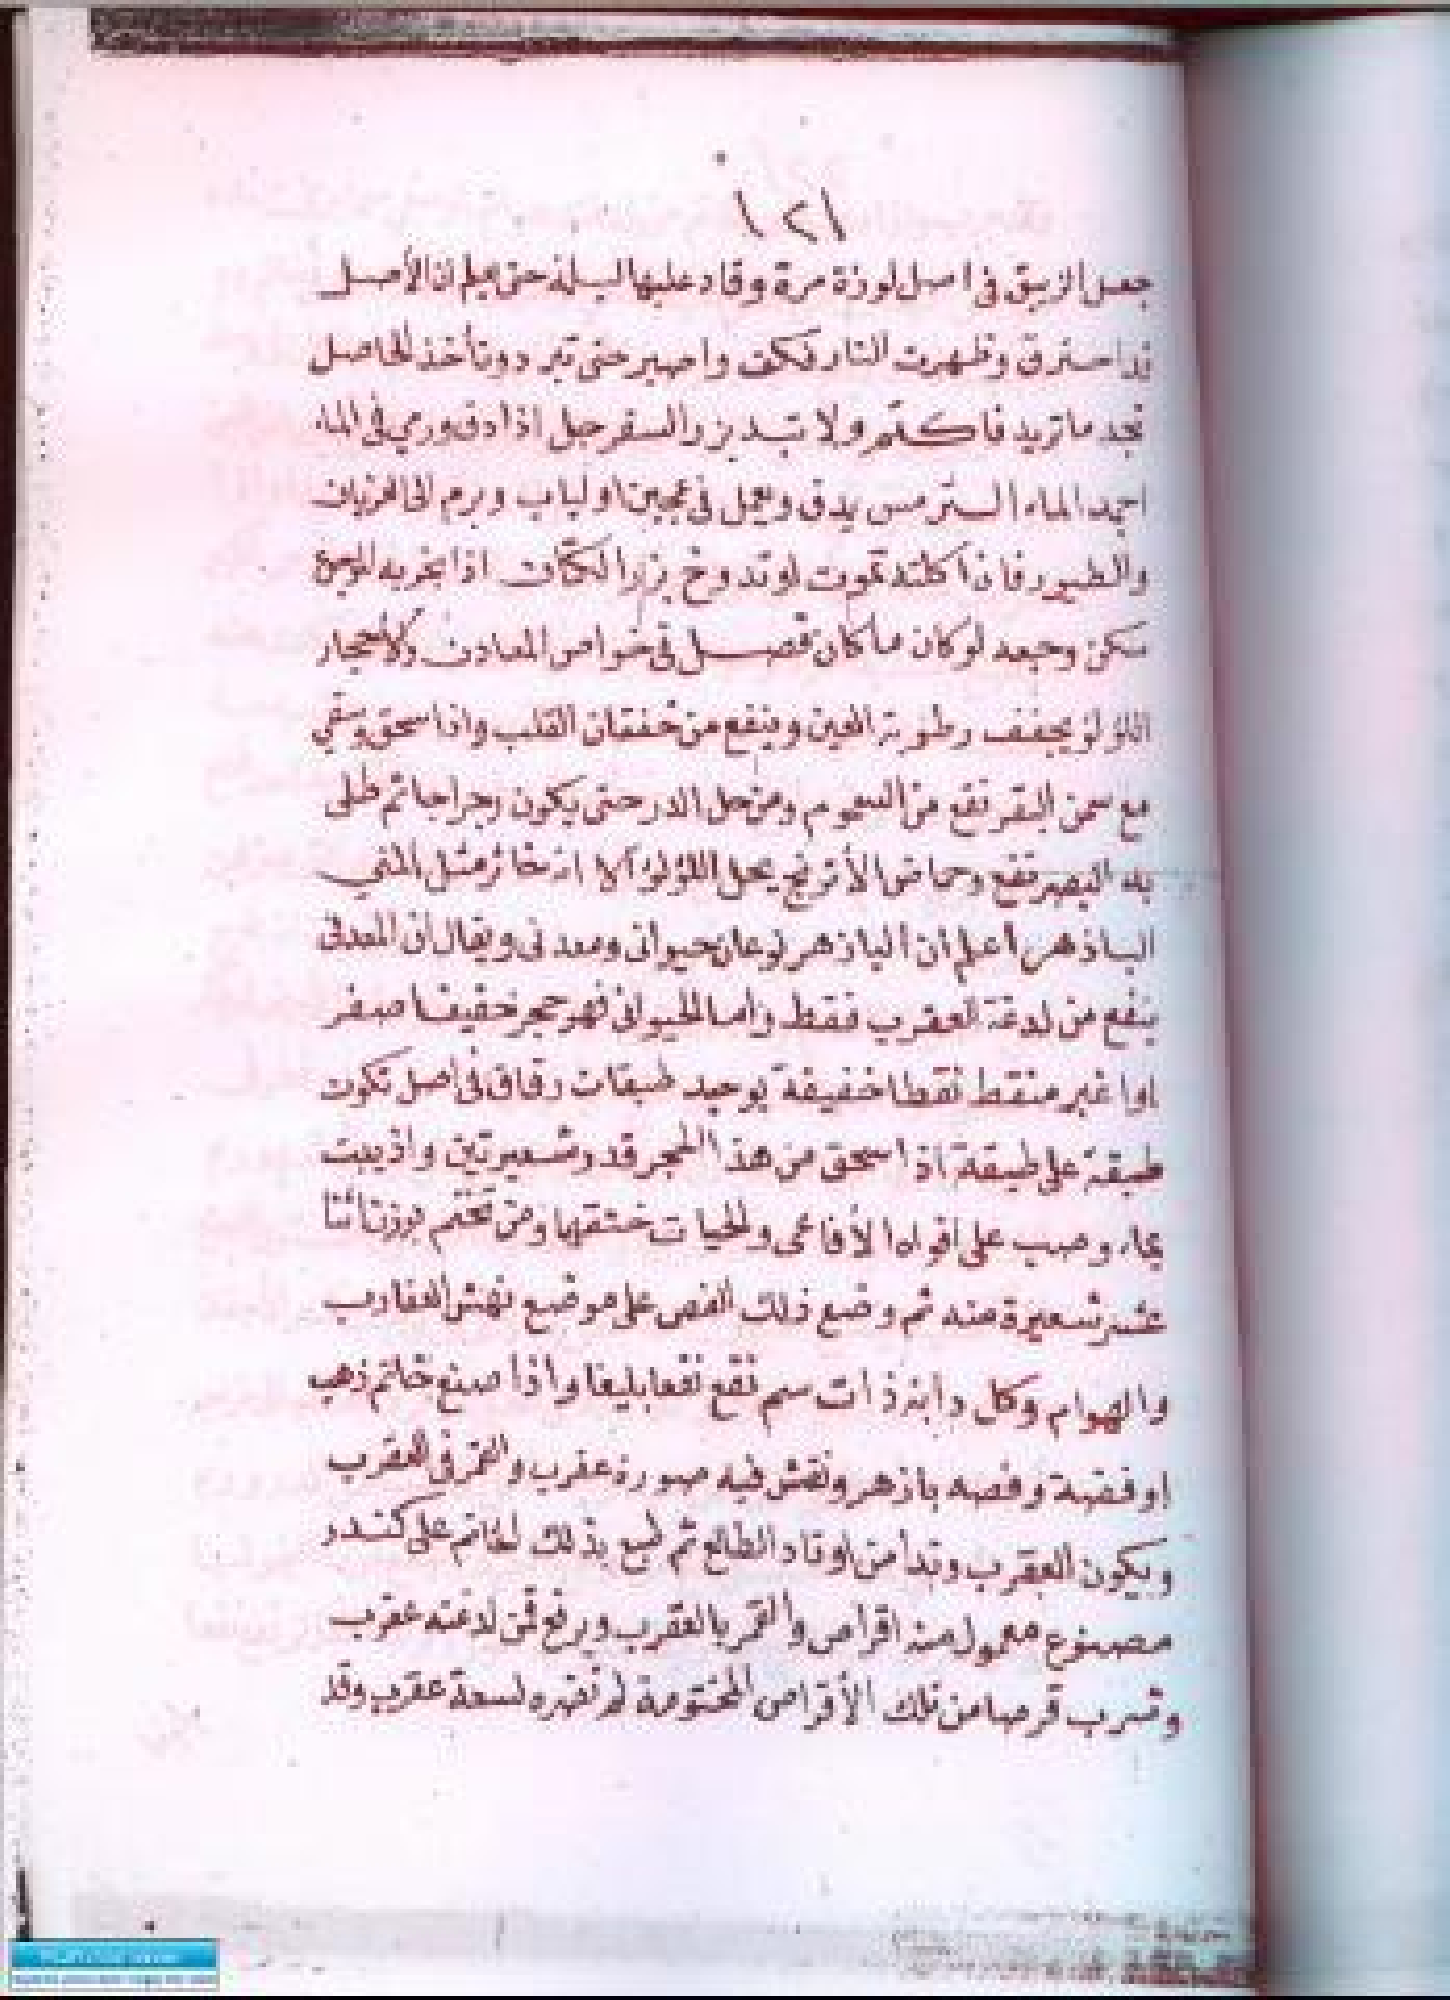 ١٢١
جعل الزيبق في اصل لوزة مرة وقاد عليها ليلة حتى يعلم ان الأصل
قد احترق وظهرت النار فكف واصبر حتى تبرد وتأخذ الحاصل
تجد ما تريد فاكتم ولا تبد بزر السفرجل اذا دق ورمي في الماء
اجمد الماء الترمس يدق ويعمل في عجين او لباب ويرم الى الغربان
والطيور فان أكلته تموت او تدوخ بزر الكتان اذا بخر به الموجوع
سكن وجعه لو كان ما كان فصل في خواص المعادن والأحجار
اللؤلؤ يجفف رطوبة العين وينفع من خفقان القلب واذا سحق وسقي
مع سمن البقر نفع من السموم ومن حل الدر حتى يكون رجراجا ثم طلى
به البهق نفع وحماض الأترنج يحل اللؤلؤ الا انه خاثر مثل المني
الباذهر أعلم ان البازهر نوعان حيواني ومعدني ويقال أن المعدني
ينفع من لدغة العقرب فقط وأما الحيواني فهو حجر خفيف اصفر
او اغبر منقط نقطا خفيفة يوجد طبقات رقاق في أصل تكون
طبقة على طبقة اذا سحق من هذا الحجر قدر شعيرتين واذيبت
بماء وصب على افواه الأفاعي والحيات خنقها ومن تختم بوزن اثنا
عشر شعيرة منه ثم وضع ذلك الفص على موضع نهش العقارب
والهوام وكل دابة ذات سم نفع نفعا بليغا واذا صنع خاتم ذهب
او فضة وفصه بازهر ونقش فيه صورة عقرب والقمر في العقرب
ويكون العقرب وتدا من اوتاد الطالع ثم طبع بذلك الخاتم على كندر
مصنوع معمول منه اقراص والقمر بالعقرب ويرفع فمن لدغته عقرب
وشرب قرصا من تلك الأقراص المختومة لم تضره لسعة عقرب وقد